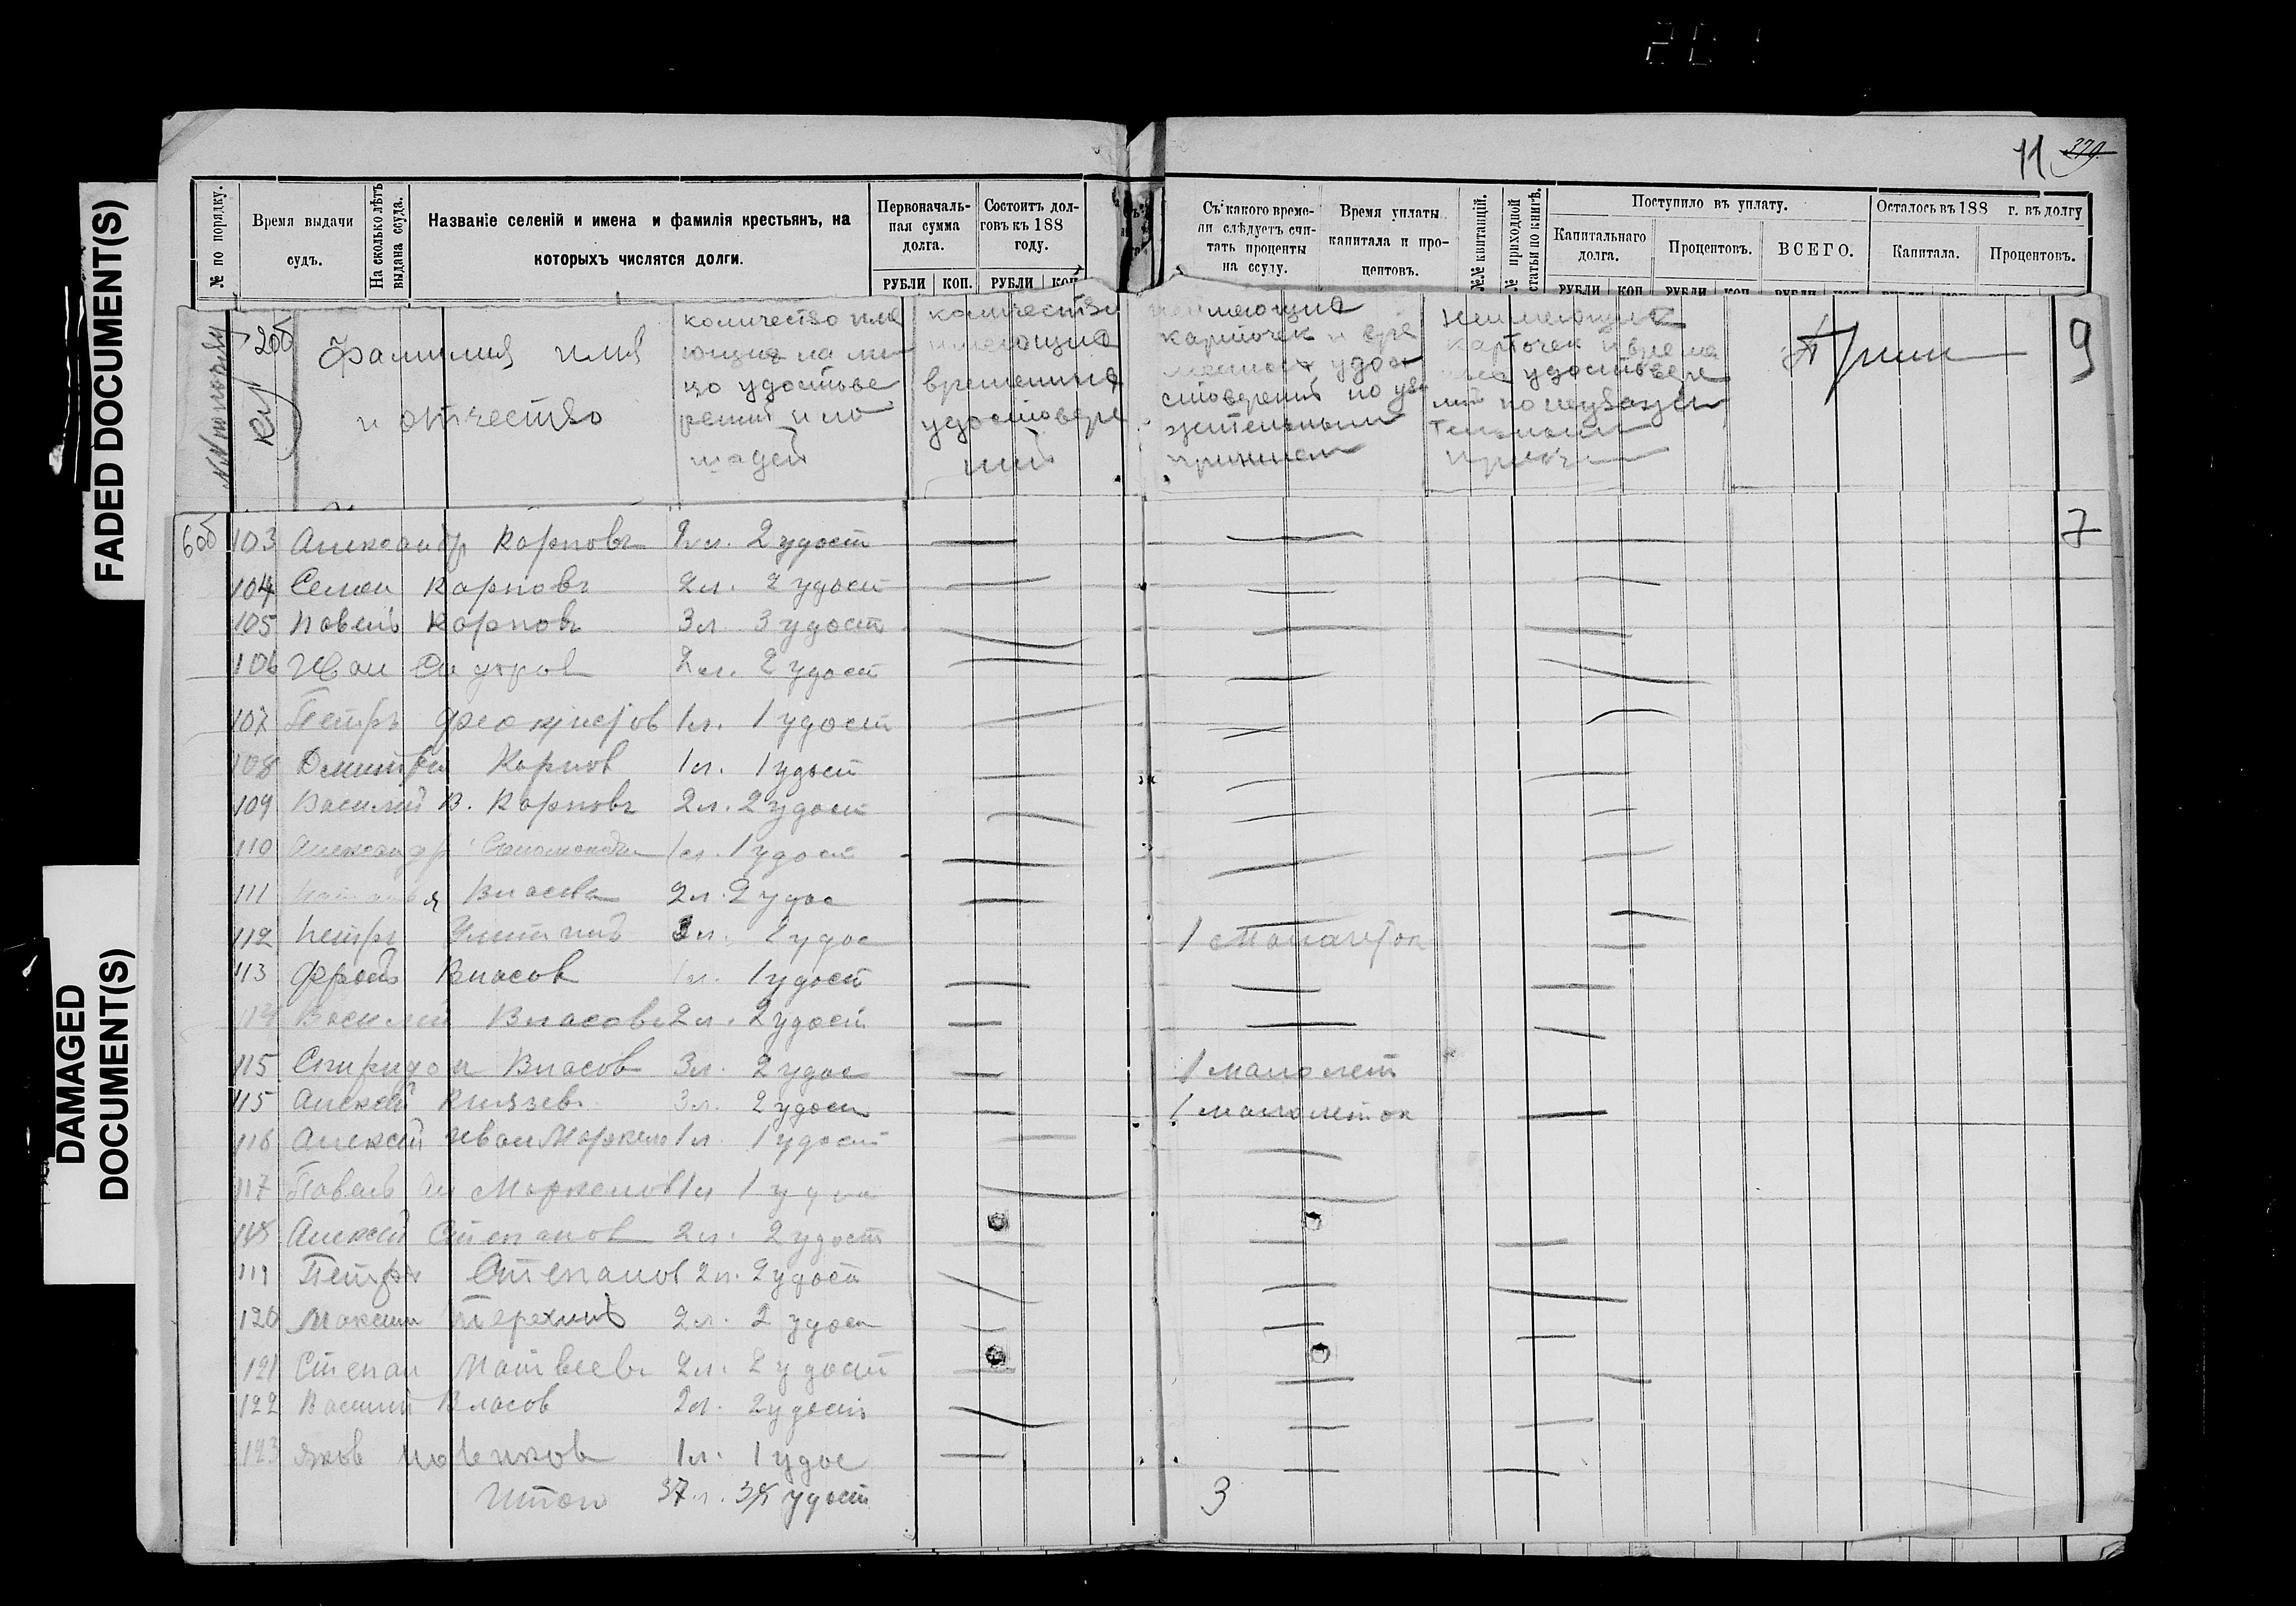 FADED DOCUMENT(S)
DAMAGED
DOCUMENT(S)
11 379
№ по порядку.
Время выдачи
судъ.
На сколько лѣтъ
выдана ссуда.
Названіе селеній и имена и фамилія крестьянъ, на
которыхъ числятся долги.
Первоначаль-
ная сумма
долга.
РУБЛИ КОП.
Состоитъ дол-
говъ къ 188
году.
РУБЛИ КОП
Съ какого време-
ни слѣдуетъ счи-
тать проценты
на ссуду.
Время уплаты
капитала и про-
центовъ.
№№ квитанцій.
№ приходной
статьи по книгѣ.
Поступило въ уплату.
Капитальнаго
долга.
Процентовъ.
ВСЕГО.
РУБЛИ КОП РУБЛИ КОП
Осталось въ 188 г. въ долгу
Капитала.
Процентовъ.
№№ по порядку
200
Фамилия имя
и отчество
количество име
ющие на ли
цо удостове
рений и ло
шадей
количество
имеющие
временные
удостовере
ний
неимеющие
карточек и вре
менных удо
стоверений по ува
жительным
причинам
неимеющие
карточек и време
удостовере
ний по неуважи
тельным
причи
Прим
9
600 103 Александр Карповъ 2л. 2 удост
7
104 Семен Карповъ 2л. 2 удост
105 Павелъ Карповъ 3л. 3 удост
106 Иван 2л. 2 удост
107 Петръ 1л. 1 удост
108 Дмитрий Карпов 1л. 1 удост
109 Василий В. Карповъ 2л. 2 удост
110 Александр 1л. 1 удост
111 Власова 2л. 2 удос
112 Петръ 3л. 2 удос 1 Малолеток
113 Власов 1л. 1 удост
114 Василий Власовъ 2л. 2 удост
115 Спиридон Власов 3л. 2 удос 1 малолет
115 Алексей Князевъ 3л. 2 удост 1 малолеток
116 Алексей Иван Маркело 1л 1 удост
117 Павелъ Ал Маркелов 1л 1 удос
118 Алексей Степанов 2л. 2 удост
119 Петръ Степанов 2л. 2 удост
120 Максим Терехинъ 2л. 2 удост
121 Степан Матвеевъ 2л. 2 удост
122 Василий Власов 2л. 2 удость
123 Яков 1л. 1 удос
Итого 37 л. удост 3